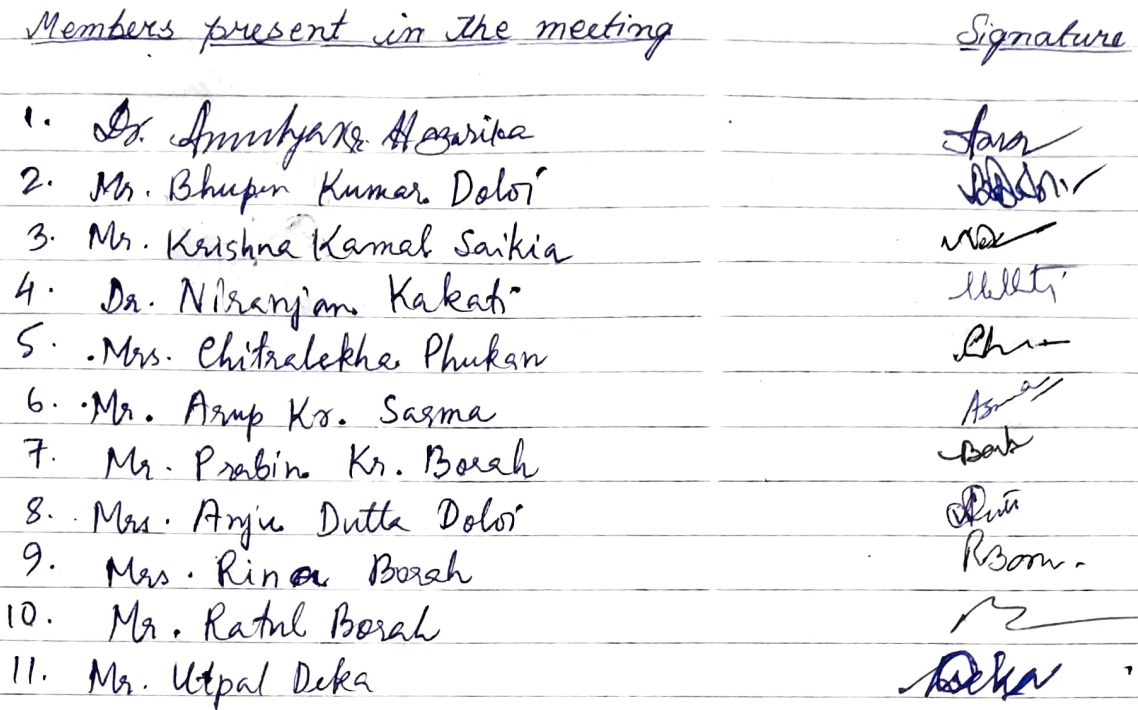 Members present in the meeting Signature
1. Dr. Hazarika
2. Mr. Bhupen Kumar Doloi
3. Mr. Krishna Kamal Saikia
4. Dr. Niranjan Kakati
5. Mrs. Chitralekha Phukan
6. Mr. Arup Kr. Sarma
7. Mr. Prabin Kr. Borah
8. Mrs. Anju Dutta Doloi
9. Mrs. Rina Borah
10. Mr. Ratul Borah
11. Mr. Utpal Deka Deka